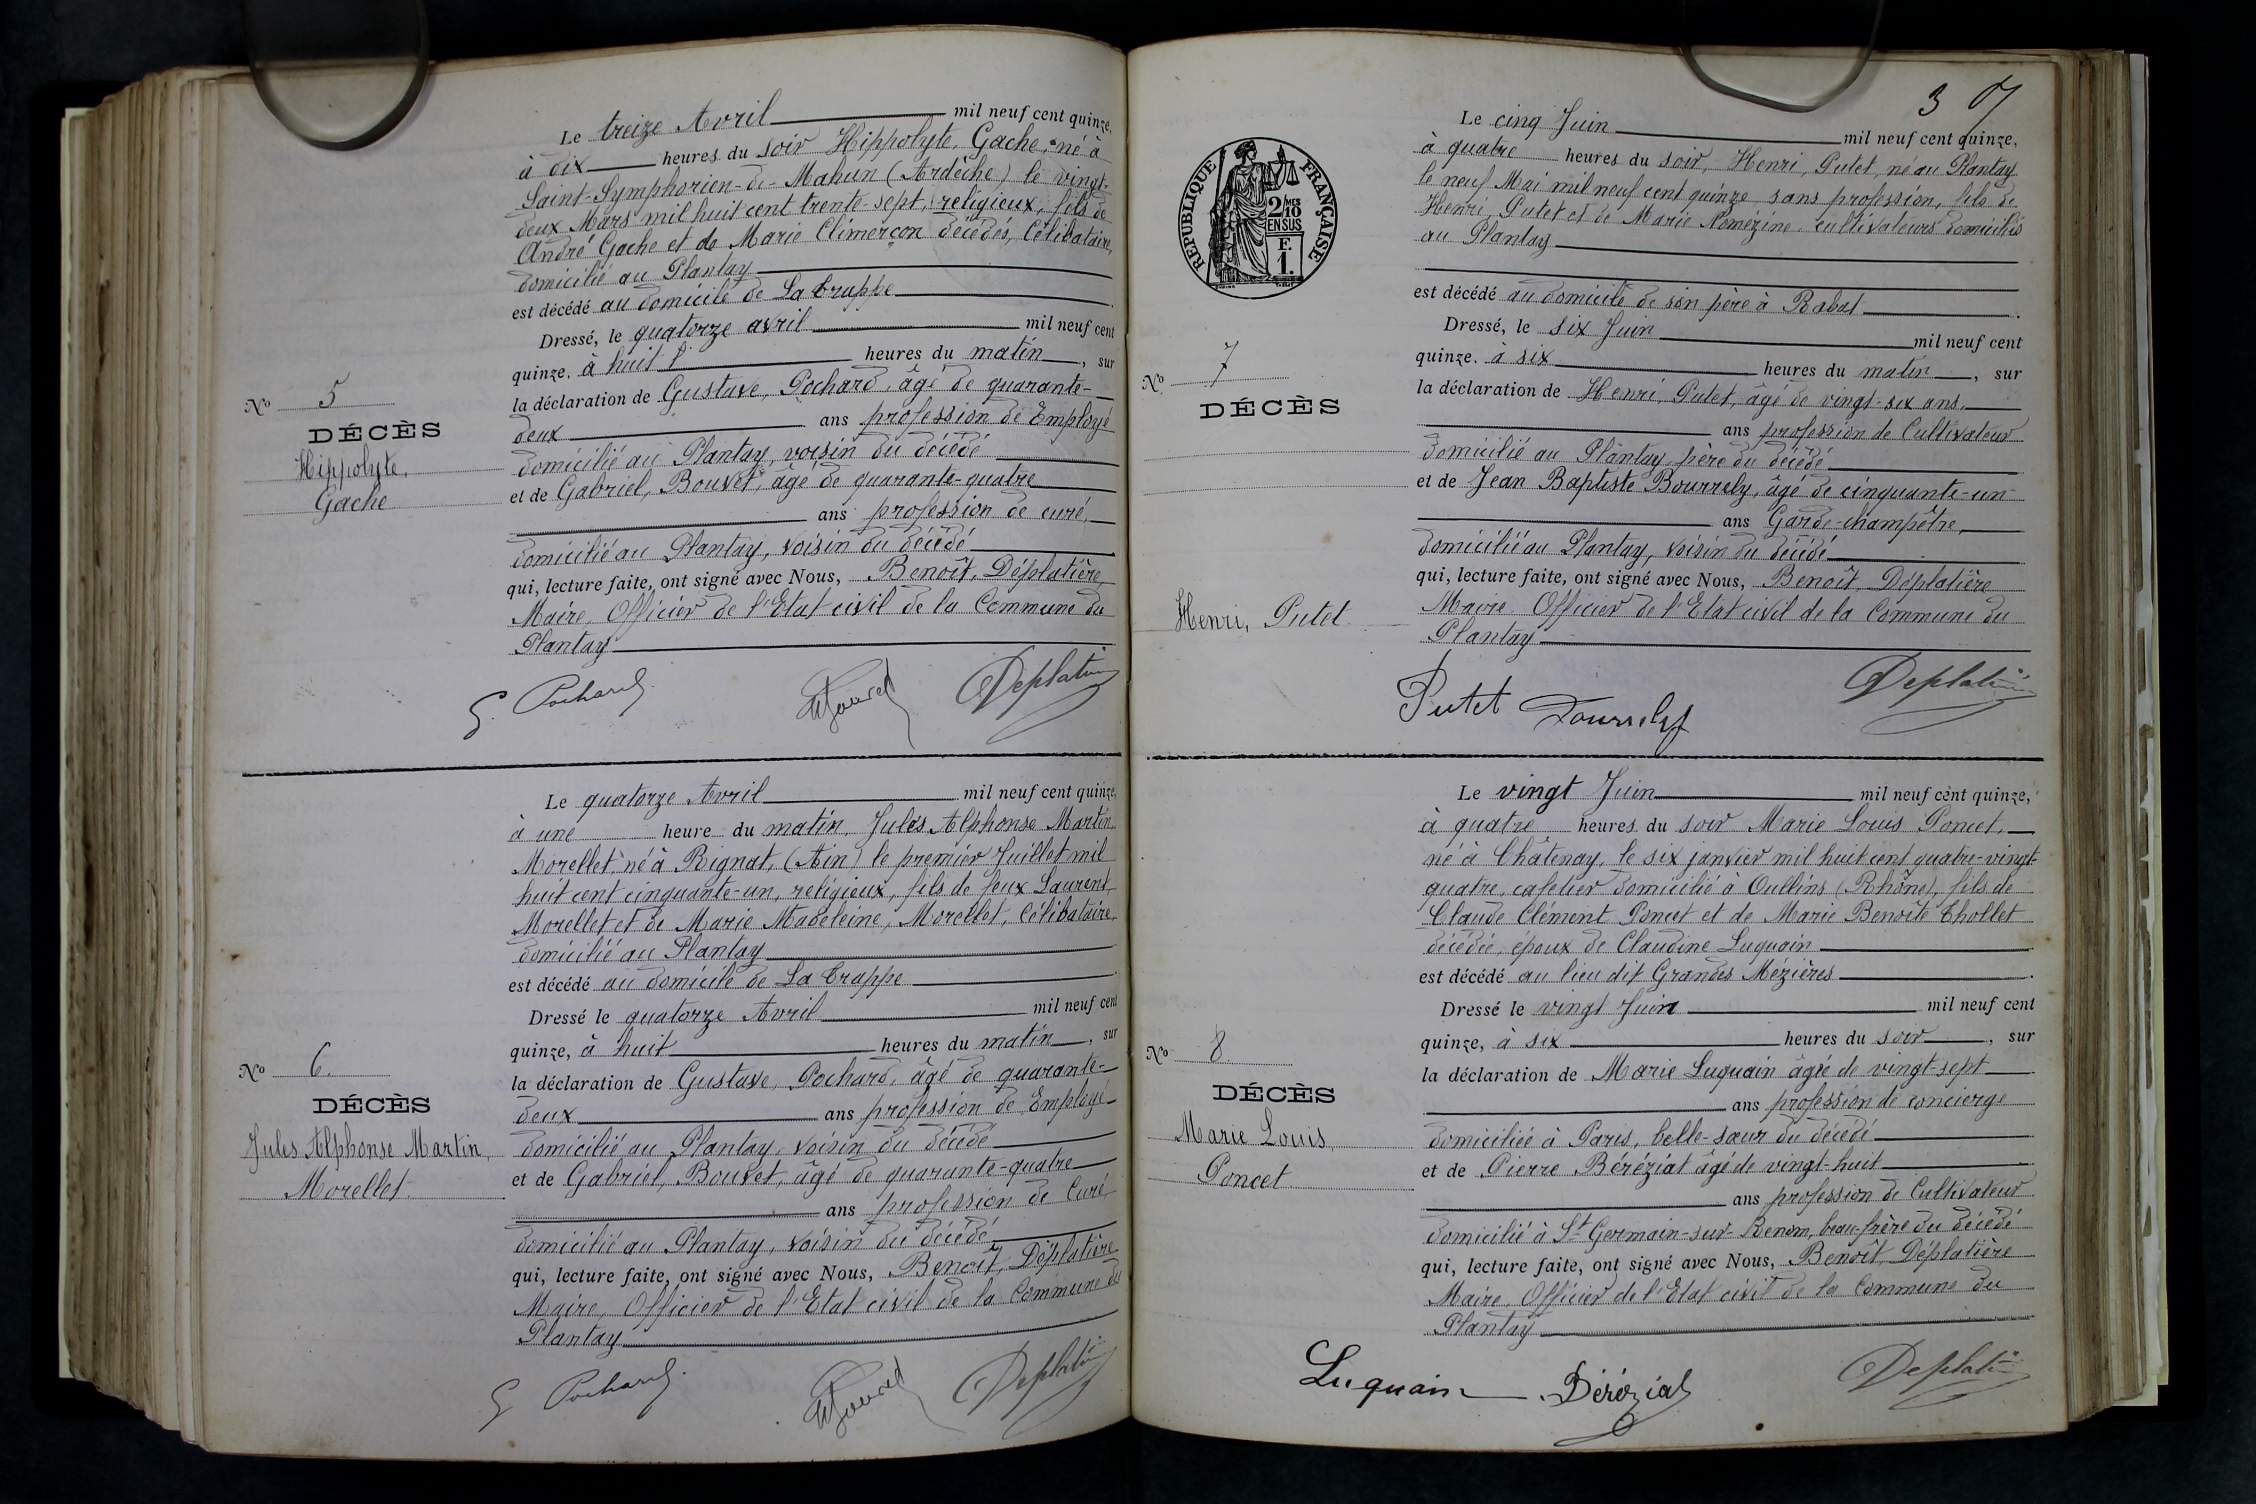 Le treize Avril mil neuf cent quinze,
à dix heures du soir Hippolyte, Gache, né à
Saint-Symphorien-de-Mahun (Ardèche) le vingt-
deux Mars mil huit cent trente-sept, religieux, fils de
André Gache et de Marie Climerçon décédés, Célibataire,
domicilié au Plantay
est décédé au domicile de La Trappe
Dressé, le quatorze avril mil neuf cent
quinze. à huit heures du matin, sur
la déclaration de Gustave, Pochard, âgé de quarante-
deux ans profession de Employé
domicilié au Plantay, voisin du décédé
et de Gabriel, Bouvet, âgé de quarante-quatre
ans profession de curé,
domicilié au Plantay, voisin du décédé
qui, lecture faite, ont signé avec Nous, Benoît, Déplatière
Maire, Officier de l'Etat civil de la Commune du
Plantay
No 5
DÉCÈS
Hippolyte,
Gache
G. Pochard
Le quatorze Avril mil neuf cent quinze,
à une heure du matin, Jules Alphonse Martin
Morellet, né à Rignat, (Ain) le premier Juillet mil
huit cent cinquante-un, religieux, fils de feux Laurent,
Morellet et de Marie Madeleine, Morellet, Célibataire,
domicilié au Plantay
est décédé au domicile de La Trappe
Dressé le quatorze Avril mil neuf cent
quinze, à huit heures du matin, sur
la déclaration de Gustave, Pochard, âgé de quarante-
deux ans profession de Employé
domicilié au Plantay, voisin du décédé
et de Gabriel, Bouvet, âgé de quarante-quatre
ans profession de Curé
domicilié au Plantay, voisin du décédé
qui, lecture faite, ont signé avec Nous, Benoît, Déplatière
Maire, Officier de l'Etat civil de la Commune du
Plantay
No 6.
DÉCÈS
Jules Alphonse Martin,
Morellet
G Pochard
3
RÉPUBLIQUE FRANÇAISE
2/10 MES
EN SUS
F.
1.
Le cinq Juin mil neuf cent quinze,
à quatre heures du soir, Henri, Putet, né au Plantay
le neuf Mai mil neuf cent quinze sans profession, fils de
Henri, Putet et de Marie cultivateurs domiciliés
au Plantay
est décédé au domicile de son père à Rabat
Dressé, le six Juin mil neuf cent
quinze. à six heures du matin, sur
la déclaration de Henri, Putet, âgé de vingt-six ans,
ans profession de Cultivateur
domicilié au Plantay, père du décédé
et de Jean Baptiste Bourrely, âgé de cinquante-un
ans Garde-champêtre,
domicilié au Plantay, voisin du décédé
qui, lecture faite, ont signé avec Nous, Benoît, Déplatière
Maire. Officier de l'Etat civil de la Commune du
Plantay
No 7
DÉCÈS
Henri, Putet
Putet Bourrely
Le vingt Juin mil neuf cent quinze,
à quatre heures du soir Marie Louis Poncet,
né à Châtenay, le six janvier mil huit cent quatre-vingt-
quatre, cafetier domicilié à Oullins (Rhône), fils de
Claude Clément Poncet et de Marie Benoîte Thollet
décédée, époux de Claudine Luquain
est décédé au lieu dit Grandes Mézières
Dressé le vingt Juin mil neuf cent
quinze, à six heures du soir, sur
la déclaration de Marie Luquain âgée de vingt-sept
ans profession de concierge
domiciliée à Paris, belle-sœur du décédé
et de Pierre Béréziat âgé de vingt-huit
ans profession de Cultivateur
domicilié à St Germain-sur-Renom, beau-frère du décédé
qui, lecture faite, ont signé avec Nous, Benoît, Déplatière
Maire, Officier de l'Etat civil de la Commune du
Plantay
No 8
DÉCÈS
Marie Louis,
Poncet
Luquain Béréziat